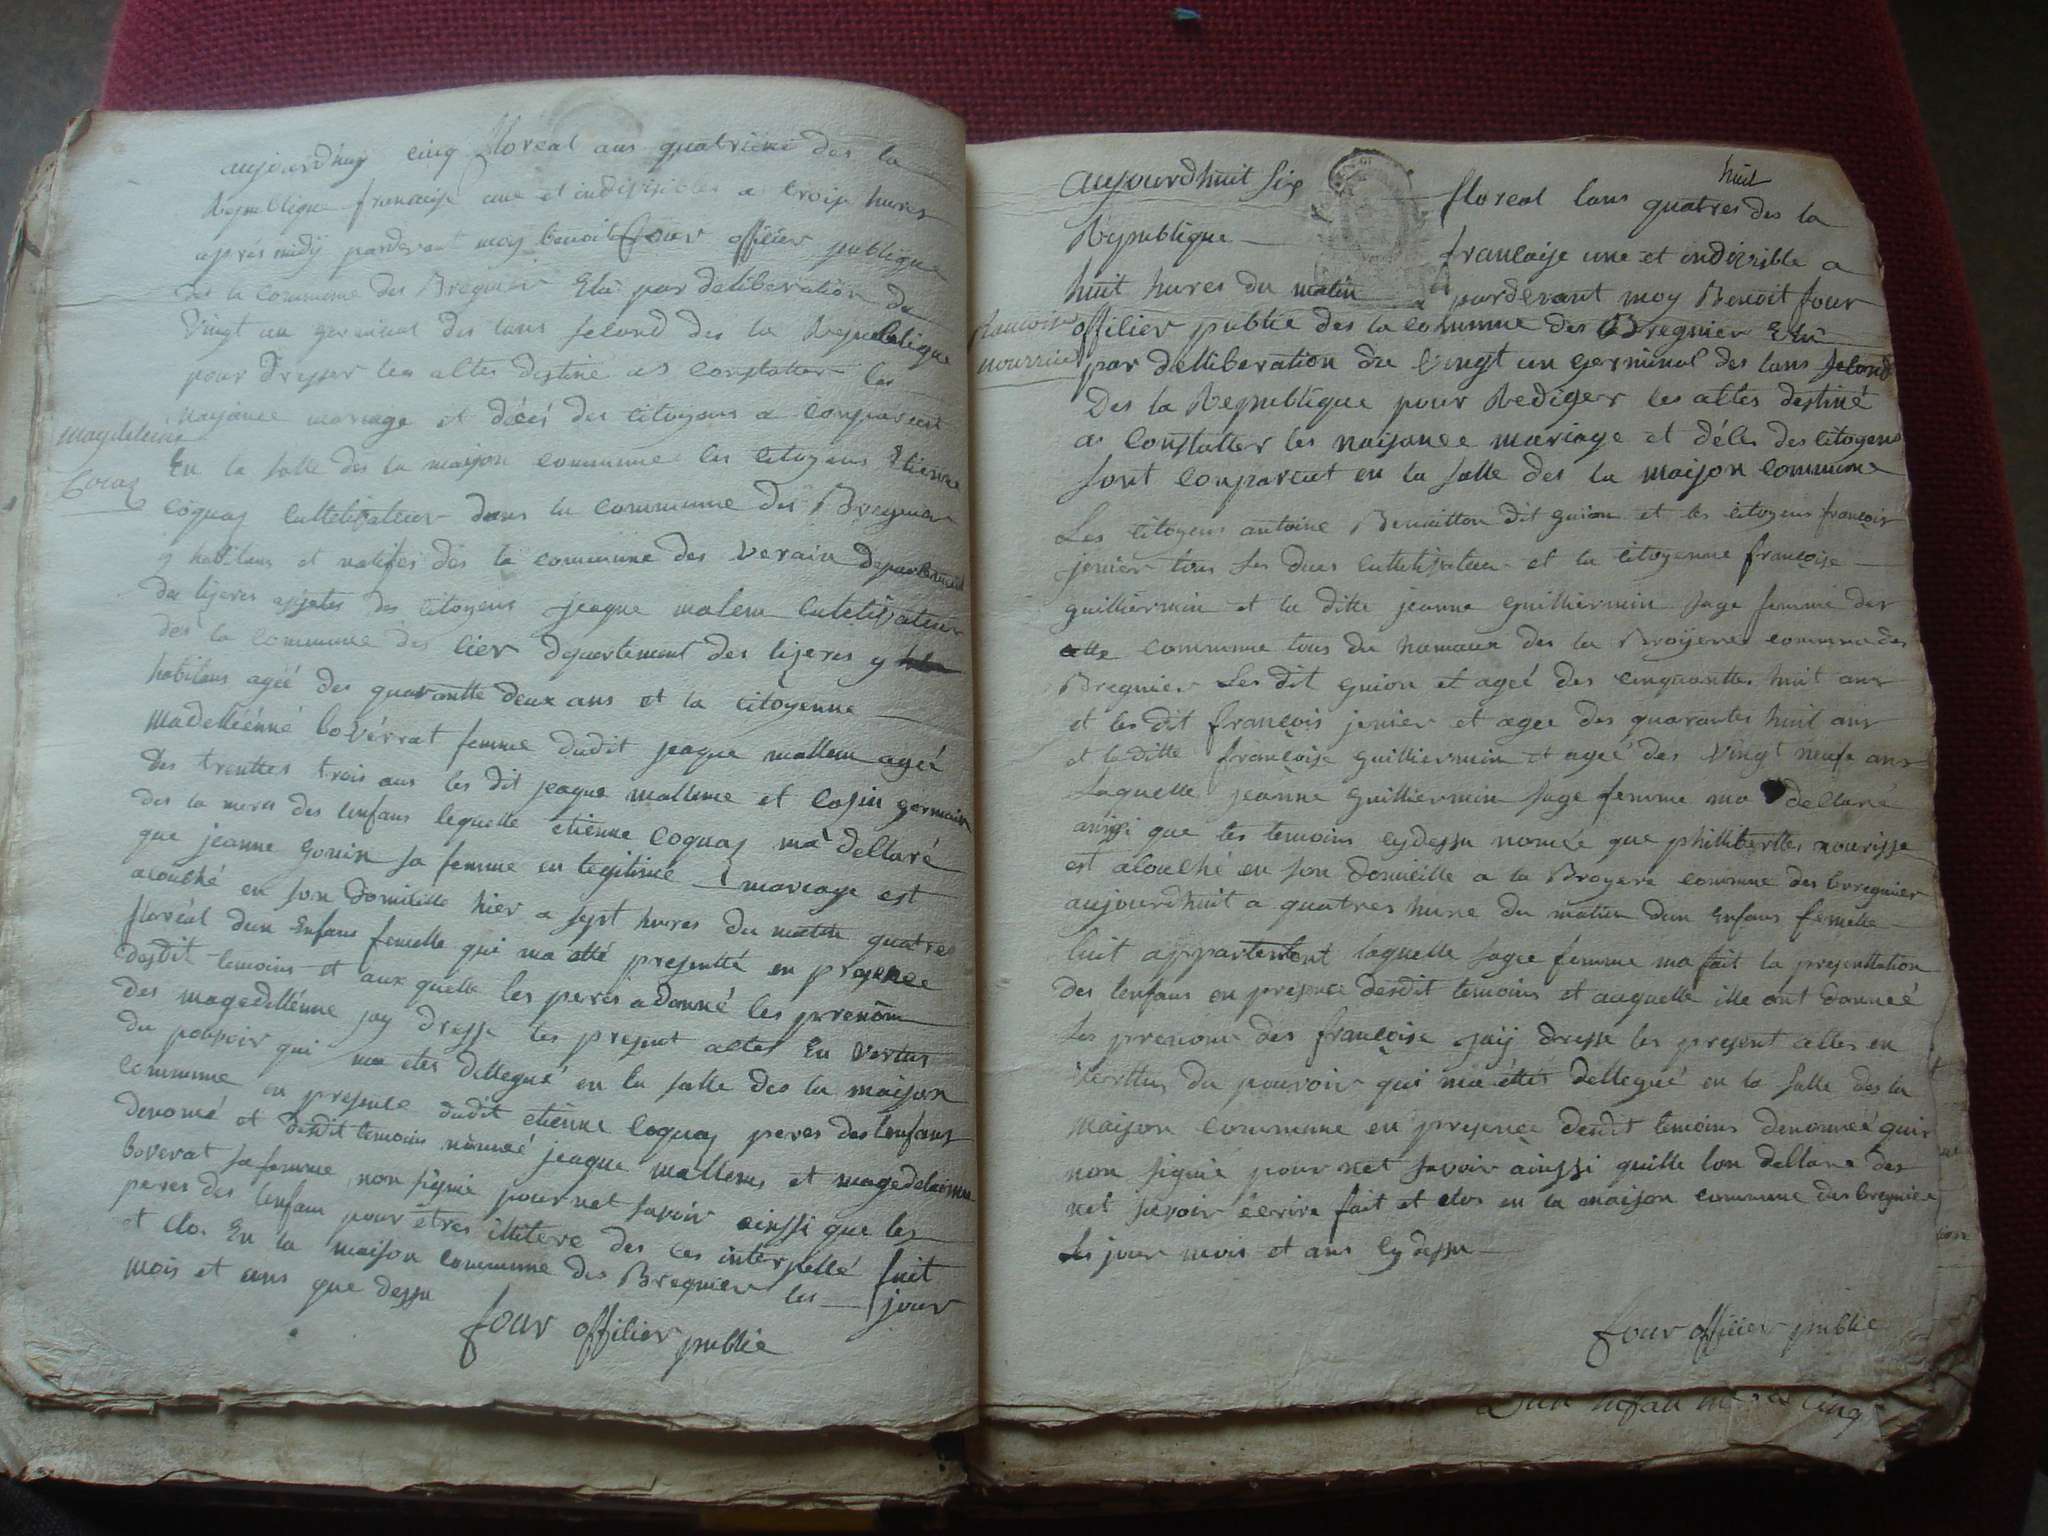 aujourd'huy cinq floréal ans quatriéme des la
Republique francaise une et indivisibles a troix hures
aprés midÿ pardevant moy benoit four offilier publique
des la commune des Bregnier Elu par deliberation du
Vingt un germinal des lans second des la Republique
pour dresser les altes destiné as constatter les
naisance mariage et décés des citoyens a comparut
En la salle des la maison commune les citoyens Etienne
Magdeleine
Cocaz
coquaz cultelivateur dans la commune des Bregnier
y habitans et natifes des la commune des Verain departement
du lizeres assistes des citoyens jeaque malem cultelivateur
des la commune des lier departement des lizeres y
habitans ageé des quarantte deux ans et la citoyenne
madelleénné bovérrat femme dudit jeaque mallem ageé
des trenttes trois ans les dit jeaque mallème et cosin germain
des la mera des lenfans lequelle etiénne coquaz ma dellaré
que jeanne gonin sa femme en legitime mariage est
acouché en son domicille hier a sept hures du matin quatres
floréal dun Enfans femelle qui ma etté presentté en presence
desdit temoins et aux quelle les peres a donné les prenom
des magedelléinne jay dresse les present altes En Vertus
du pouvoir qui ma etes dellegué en la salle des la maison
commune en presence dudit etiénne coquaz peres des lenfans
denomé et desdit temoins nomeé jeaque mallems et magedelainne
boverat sa femme non signié pour net savoir ainssi que les
peres des lenfans pour etres illitere des ces interpellé fait
et clos En la maison commune des Bregnier les jour
mois et ans que dessu
four offilier publie
aujourdhuit six floreal lans quatres des la
huit
Republique francaise une et indivisible a
huit hures du matin pardevant moy Benoit four
francoise
nourrice
offilier publie des la commune des Bregnier Elu
par delliberation du Vingt un germinal des lans second
Des la Republique pour Rediger les altes destiné
as constatter les naisance mariage et déles des citogens
sont comparut en la salle des la maison commune
Les citoyens antoine Benaitton dit guion et les citoyens françois
jenier tous les dues cultelivateur et la citoyenne françoise
guilliermin et la ditte jeanne guilliermin sage femme der
cette commune tous du hamaux des la Broyere commune des
Bregnier Les dit guion et ageé des cinquanttes huit ans
et les dit françois jenier et agee des quarantes huit ans
et la ditte françoise guilliermin et ageé des Vingt neufe ans
Laquelle jeanne guilliermin sage femme ma dellaré
anissi que les temoins cydessu nomée que phillibertte nourisse
est acouché en son domicille a la Broyere commune des bregnier
aujourdhuit a quatres hure du matin dun Enfans femelle
luit appartenont laquelle sagee femme ma fait la presenttation
des lenfans en presence desdit temoins et auquelle ille ont donneé
Les prenoms des francoise jaÿ dresse les present altes en
Verttus du pouvoir qui ma ettes dellegué en la salle des la
maison commune en presence desdit temoins denomeé qui
non signié pour net savoir ainssi quille lon dellaré des
net savoir ecrire fait et clos en la maison commune des bregnier
Les jour mois et ans cy dessu
four offilier publie